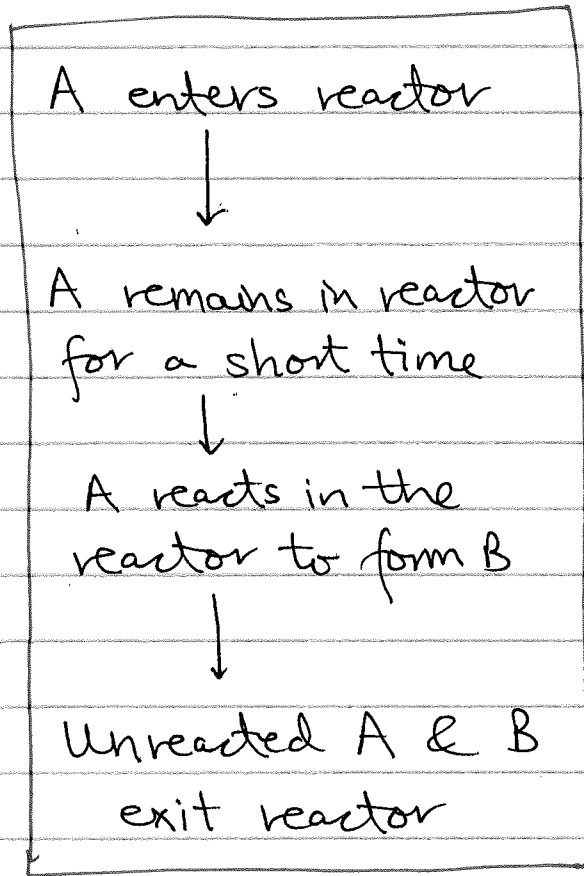 A enters reactor
A remains in reactor
for a short time
A reacts in the
reactor to form B
Unreacted A & B
exit reactor